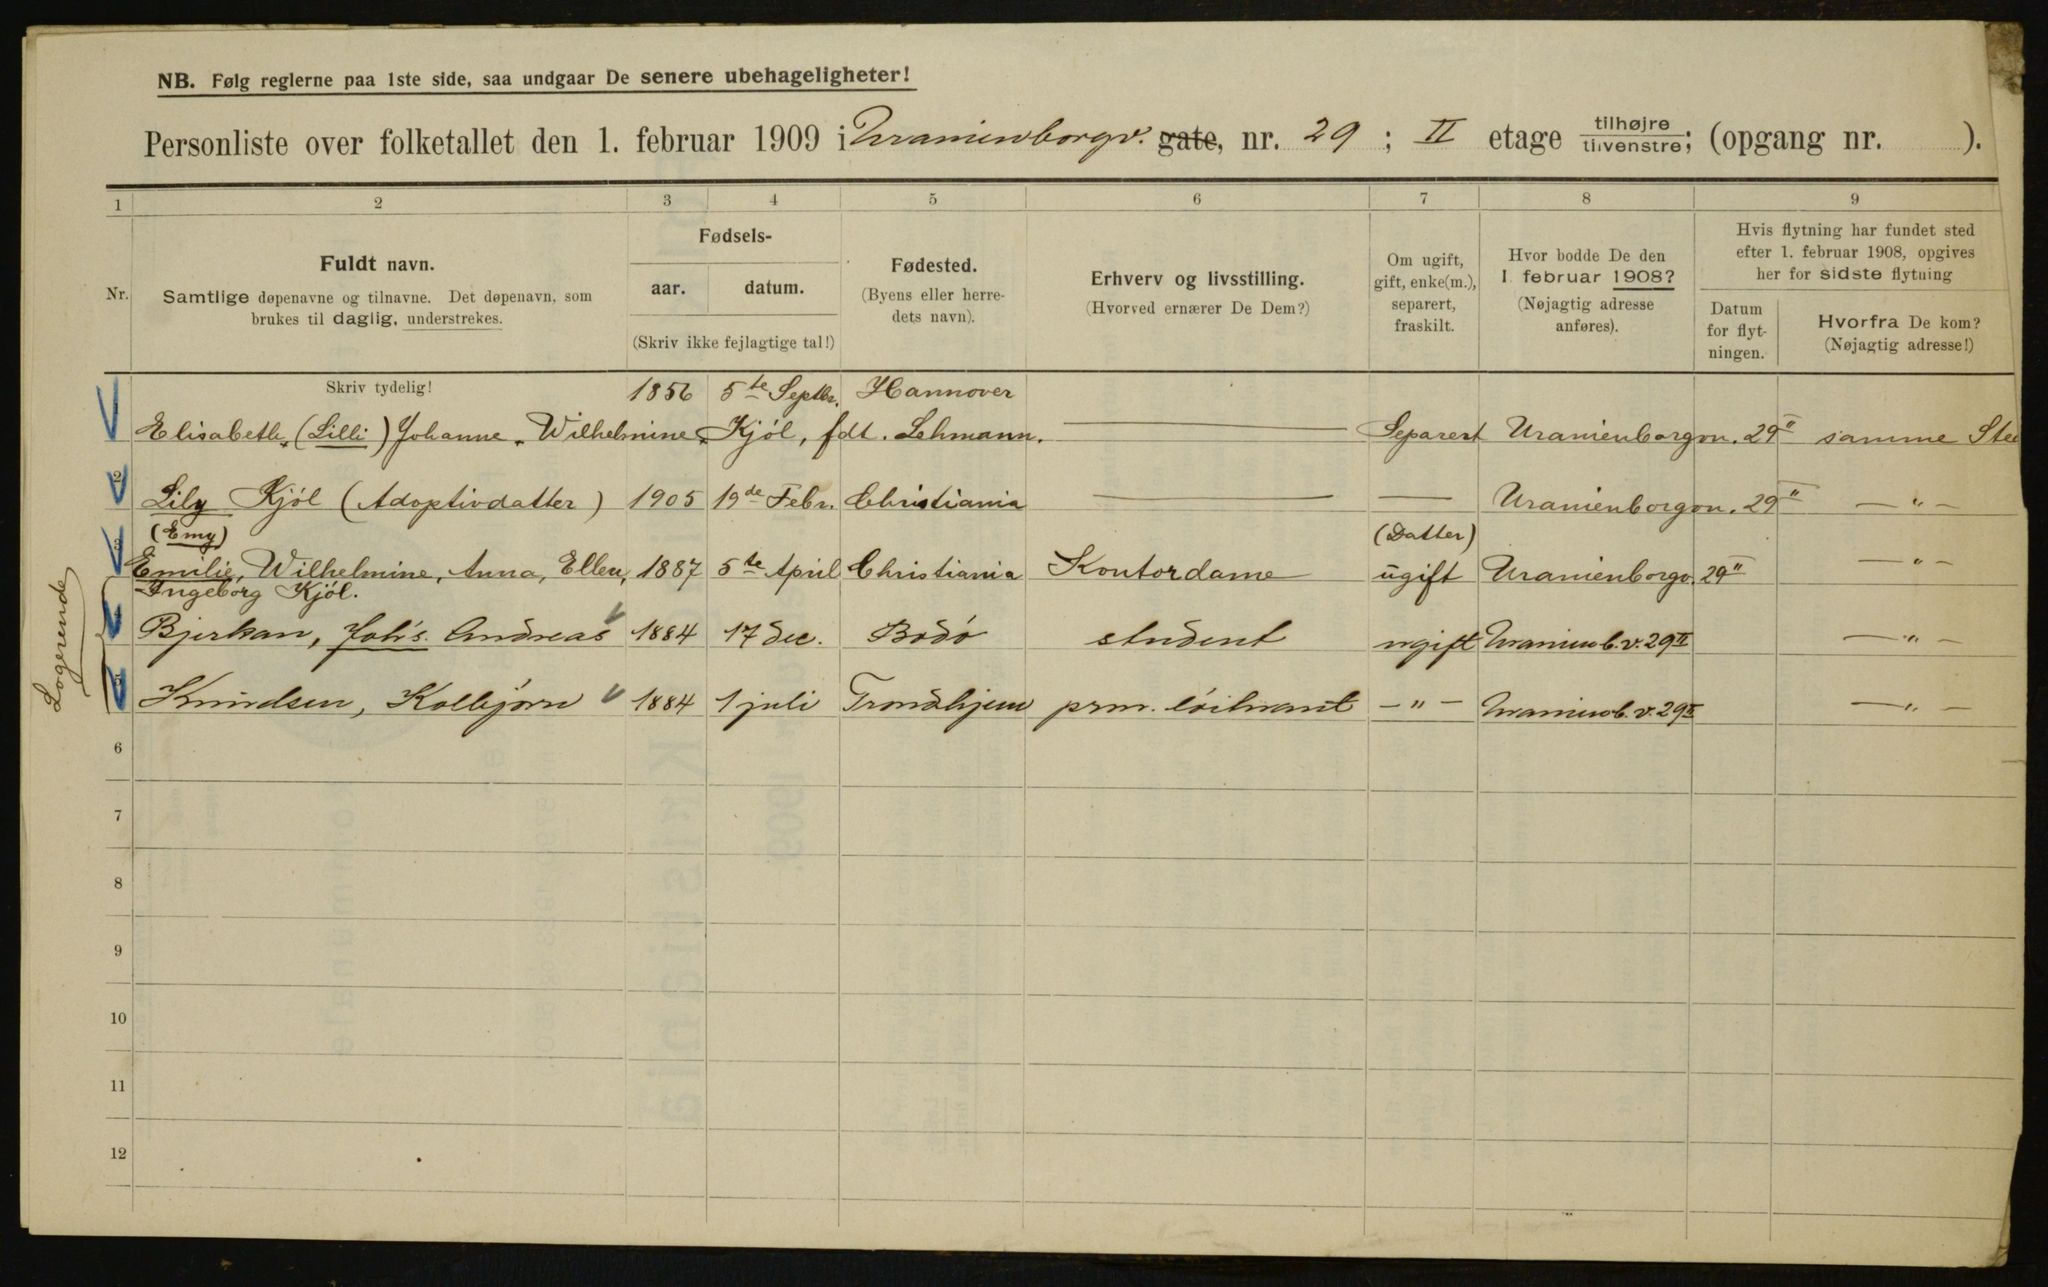 NB. Følg reglerne paa 1ste side, saa undgaar De senere ubehageligheter!
Personliste over folketallet den 1. februar 1909 i Uranienborgv. gate, nr. 29 ; II etage tilhøjre tilvenstre; (opgang nr. ).
1 2 3 4 5 6 7 8 9
Nr.
Fuldt navn.
Samtlige døpenavne og tilnavne. Det døpenavn, som
brukes til daglig, understrekes.
Fødsels-
aar. datum.
(Skriv ikke fejlagtige tal!)
Fødested.
(Byens eller herre-
dets navn).
Erhverv og livsstilling.
(Hvorved ernærer De Dem?)
Om ugift,
gift, enke(m.),
separert,
fraskilt.
Hvor bodde De den
1 februar 1908?
(Nøjagtig adresse
anføres).
Hvis flytning har fundet sted
efter 1. februar 1908, opgives
her for sidste flytning
Datum
for flyt-
ningen.
Hvorfra De kom?
(Nøjagtig adresse!)
Skriv tydelig! 1856 5te Septbr. Hannover
Elisabeth, (Lilli) Johanne, Wilhelmine, Kjöl, fdt. Lehmann. — Separert Uranienborgvn. 29II samme Ste
2 Lily Kjöl (Adoptivdatter) 1905 19de Febr. Christiania — — Uranienborgvn. 29II — " —
(Emy) (Datter)
3 Emilie, Wilhelmine, Anna, Ellen, 1887 5te April Christiania Kontordame ugift Uranienborgv. 29II — " —
Ingeborg Kjöl.
Logerende
4 Bjerkan, Joh's. Andreas 1884 17 dec. Bodö student ugift Uranienb.v. 29II — " —
5 Knudsen, Kolbjörn 1884 1 juli Trondhjem prm. löitnant — " — Uranienb.v. 29II — " —
6
7
8
9
10
11
12